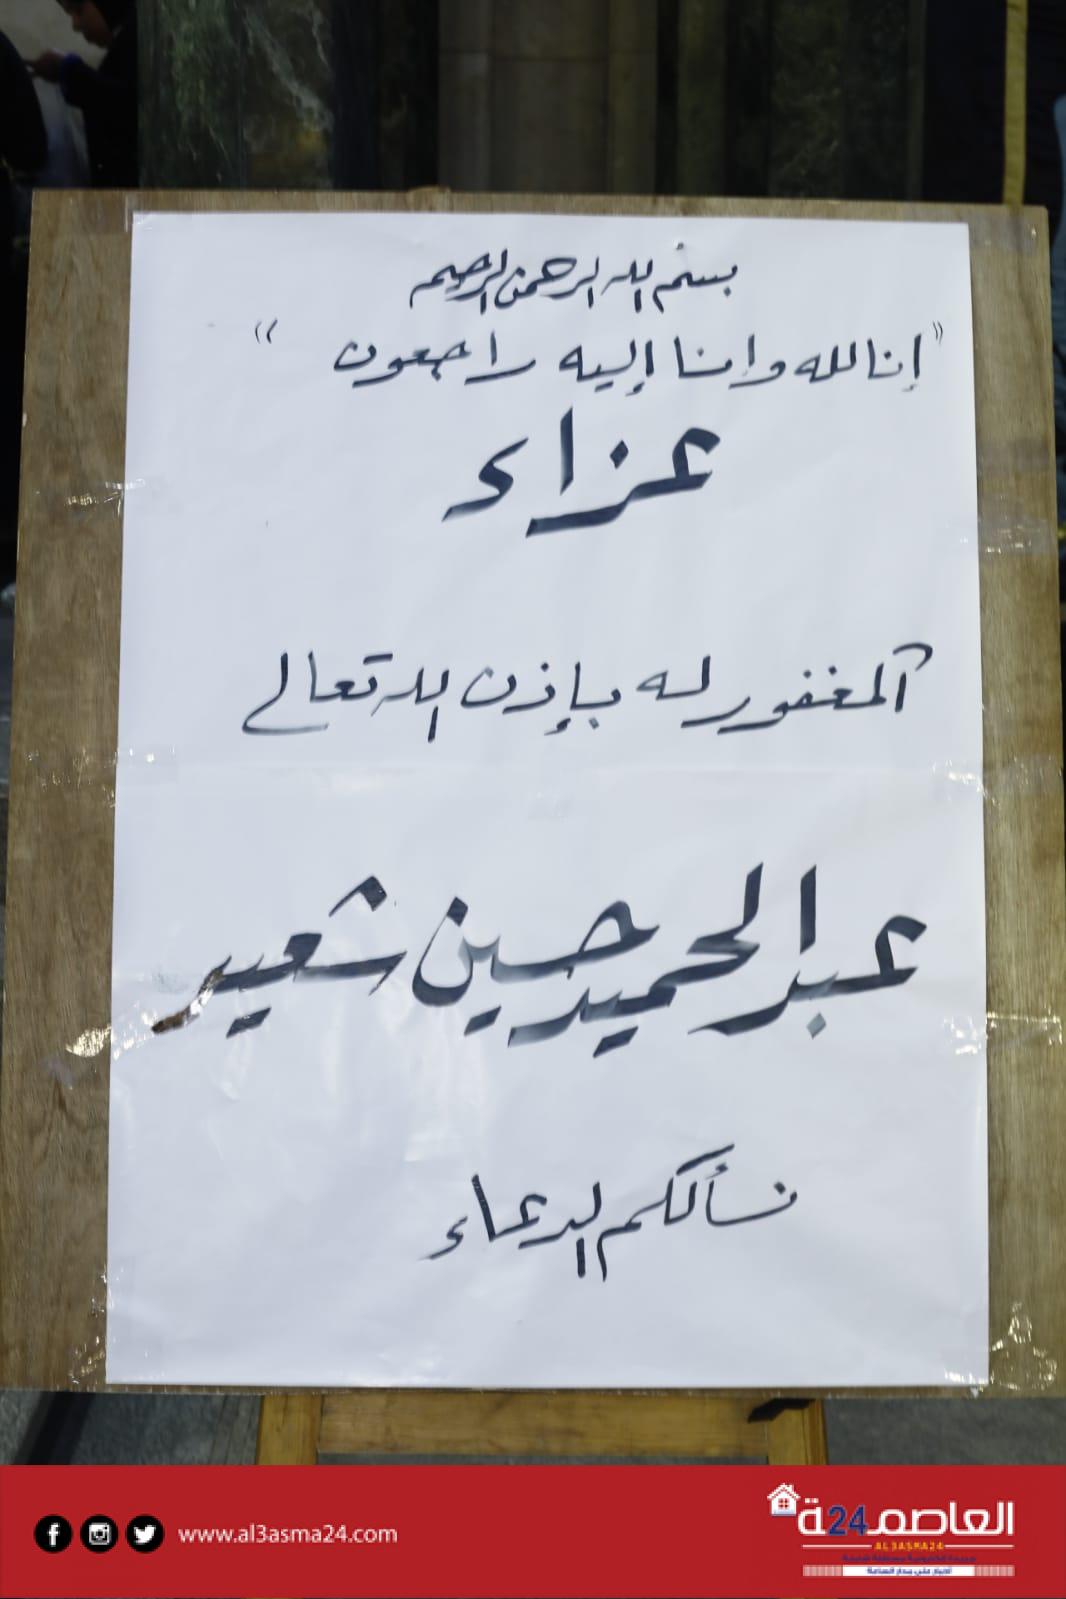 بسم الله الرحمن الرحيم
"إنا لله وإنا إليه راجعون"
عزاء
المغفور له بإذن الله تعالى
عبد الحميد حسين شعير
نسألكم الدعاء
www.al3asma24.com
العاصمة 24
AL3ASMA24